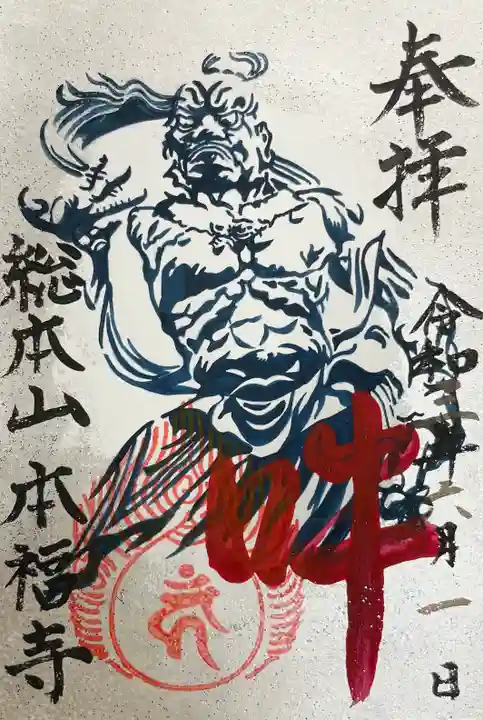 奉拝
令和三年六月一日
吽
総本山 本福寺